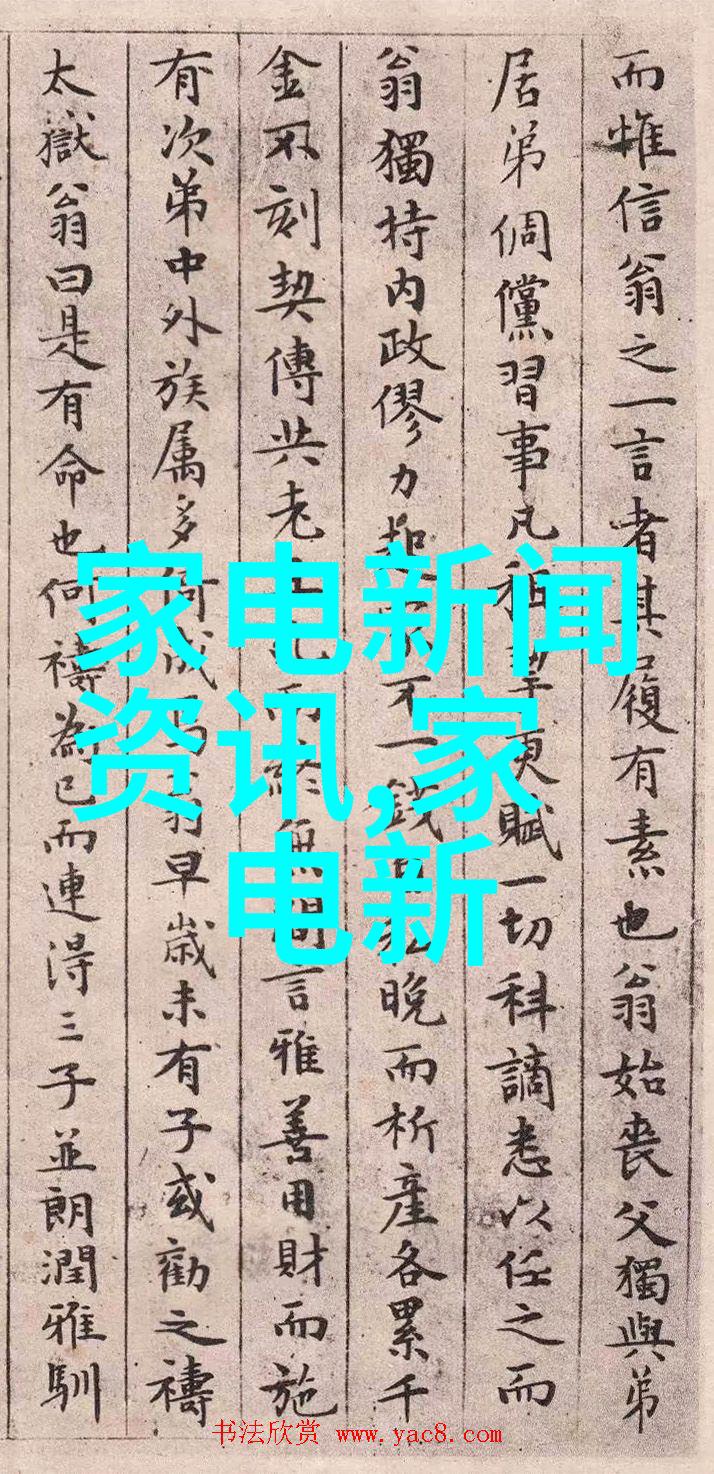 而惟信翁之一言者其履有素也翁始喪父獨與弟
居弟倜儻習事凡税犂更賦一切科謫悉以任之而
翁獨持内政僇力起不一錢晚而析產各累千
金不刻契傳共老而終無間言雅善用財而施
有次弟中外族属多倚成翁早歲未有子或勸之禱
太嶽翁曰是有命也何禱為已而連得三子並朗潤雅馴
家电新闻
资讯,家
电新
书法欣赏 www.yac8.com